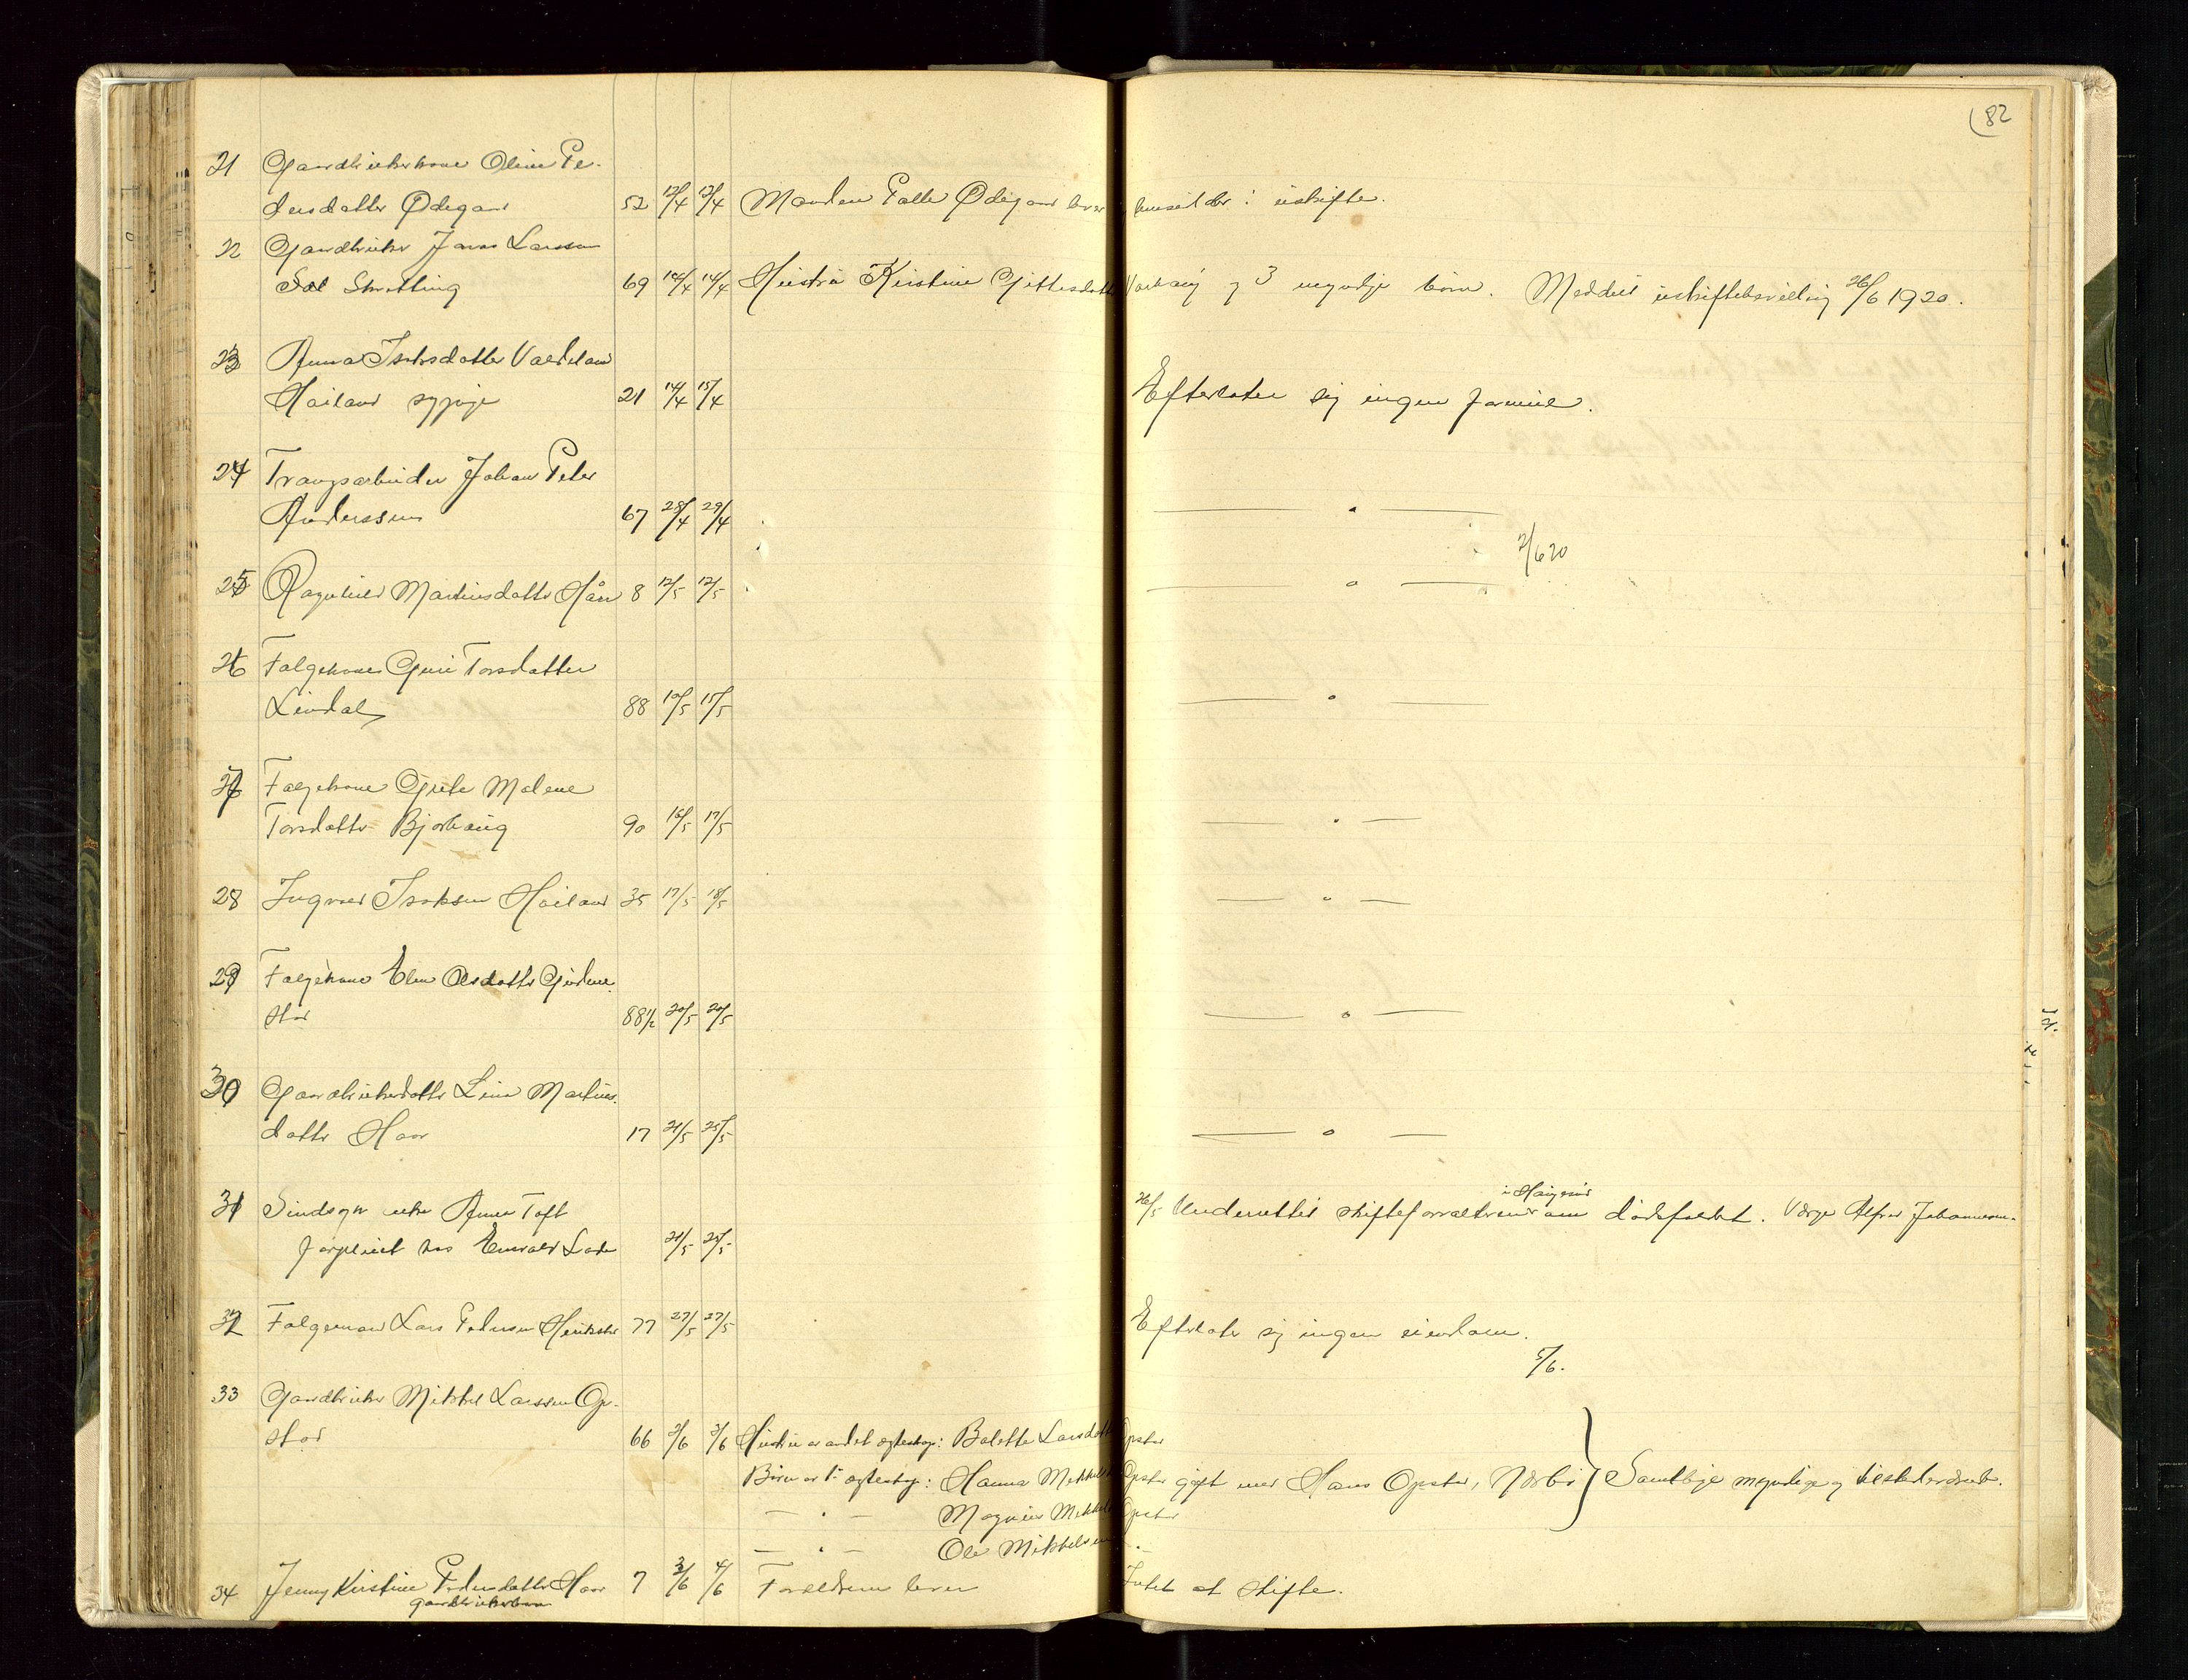 82
21 Gaardbrukerkone Oline Pe-
dersdatter Ødegaard 52 12/4 13/4 Manden Palle Ødegaard lever, hensidder i uskifte.
22 Gaardbruker Jonas Larssen
Sæl Skretting 69 14/4 14/4 Hustru Kristine Gittesdatter Varhaug og 3 myndige børn. Meddelt uskiftebevilling 26/6 1920.
23 Anna Isaksdatter Varheland
Høiland sypige 21 14/4 15/4 Efterlater sig ingen formue.
24 Tvangsarbeider Johan Peter
Anderssen 67 28/4 29/4 — " —
2/6 20
25 Ragnhild Martinsdatter Hårr 8 12/5 12/5 — " —
26 Følgekone Guri Torsdatter
Lindal 88 10/5 15/5 — " —
27 Følgekone Grete Malene
Torsdatter Bjorhaug 90 16/5 17/5 — " —
28 Ingvald Isaksen Høiland 35 17/5 18/5 — " —
29 Følgekone Elen Olsdatter Gudme-
stad 88 1/2 20/5 20/5 — " —
30 Gaardbrukerdatter Lina Martins-
datter Haar 17 21/5 25/5 — " —
31 Sindssyk enke Anna Toft
forpleiet hos Enevald Lode 21/5 25/5 26/5 Underrettet skifteforvalteren i Haugesund om dødsfaldet. Værge Alfred Johannesen.
32 Følgemand Lars Pedersen Herikstad 77 27/5 27/5 Efterlater sig ingen eiendom.
5/6.
33 Gaardbruker Mikkel Larssen Op-
stad 66 2/6 3/6 Hustru av andet egteskap: Bolette Larsdatter Opstad
Børn av 1ste egteskap: Hanna Mikkelsd. Opstad gift med Hans Opstad, Nærbø } Samtlige myndige og tilstedeværende.
— " — Magnus Mikkelsen Opstad
— " — Ole Mikkelsen "
34 Jenny Kirstine Pedersdatter Haar 7 3/6 4/6 Forældrene lever Intet at skifte.
gaardbrukerbarn